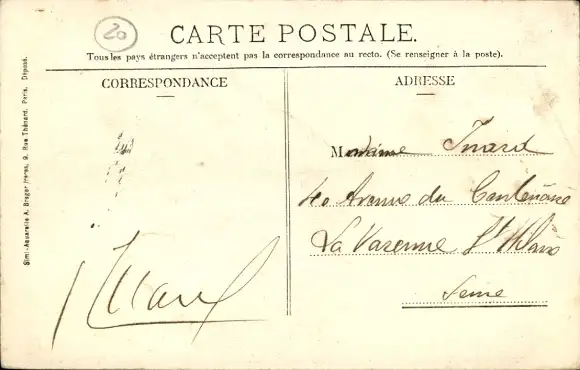 20
CARTE POSTALE.
Tous les pays étrangers n'acceptent pas la correspondance au recto. (Se renseigner à la poste).
CORRESPONDANCE
ADRESSE
Madame Inard
40 Avenue du Centenaire
La Varenne St Hilaire
Seine
Simi-Aquarelle A. Breger Frères, 9, Rue Thénard, Paris. Déposé.